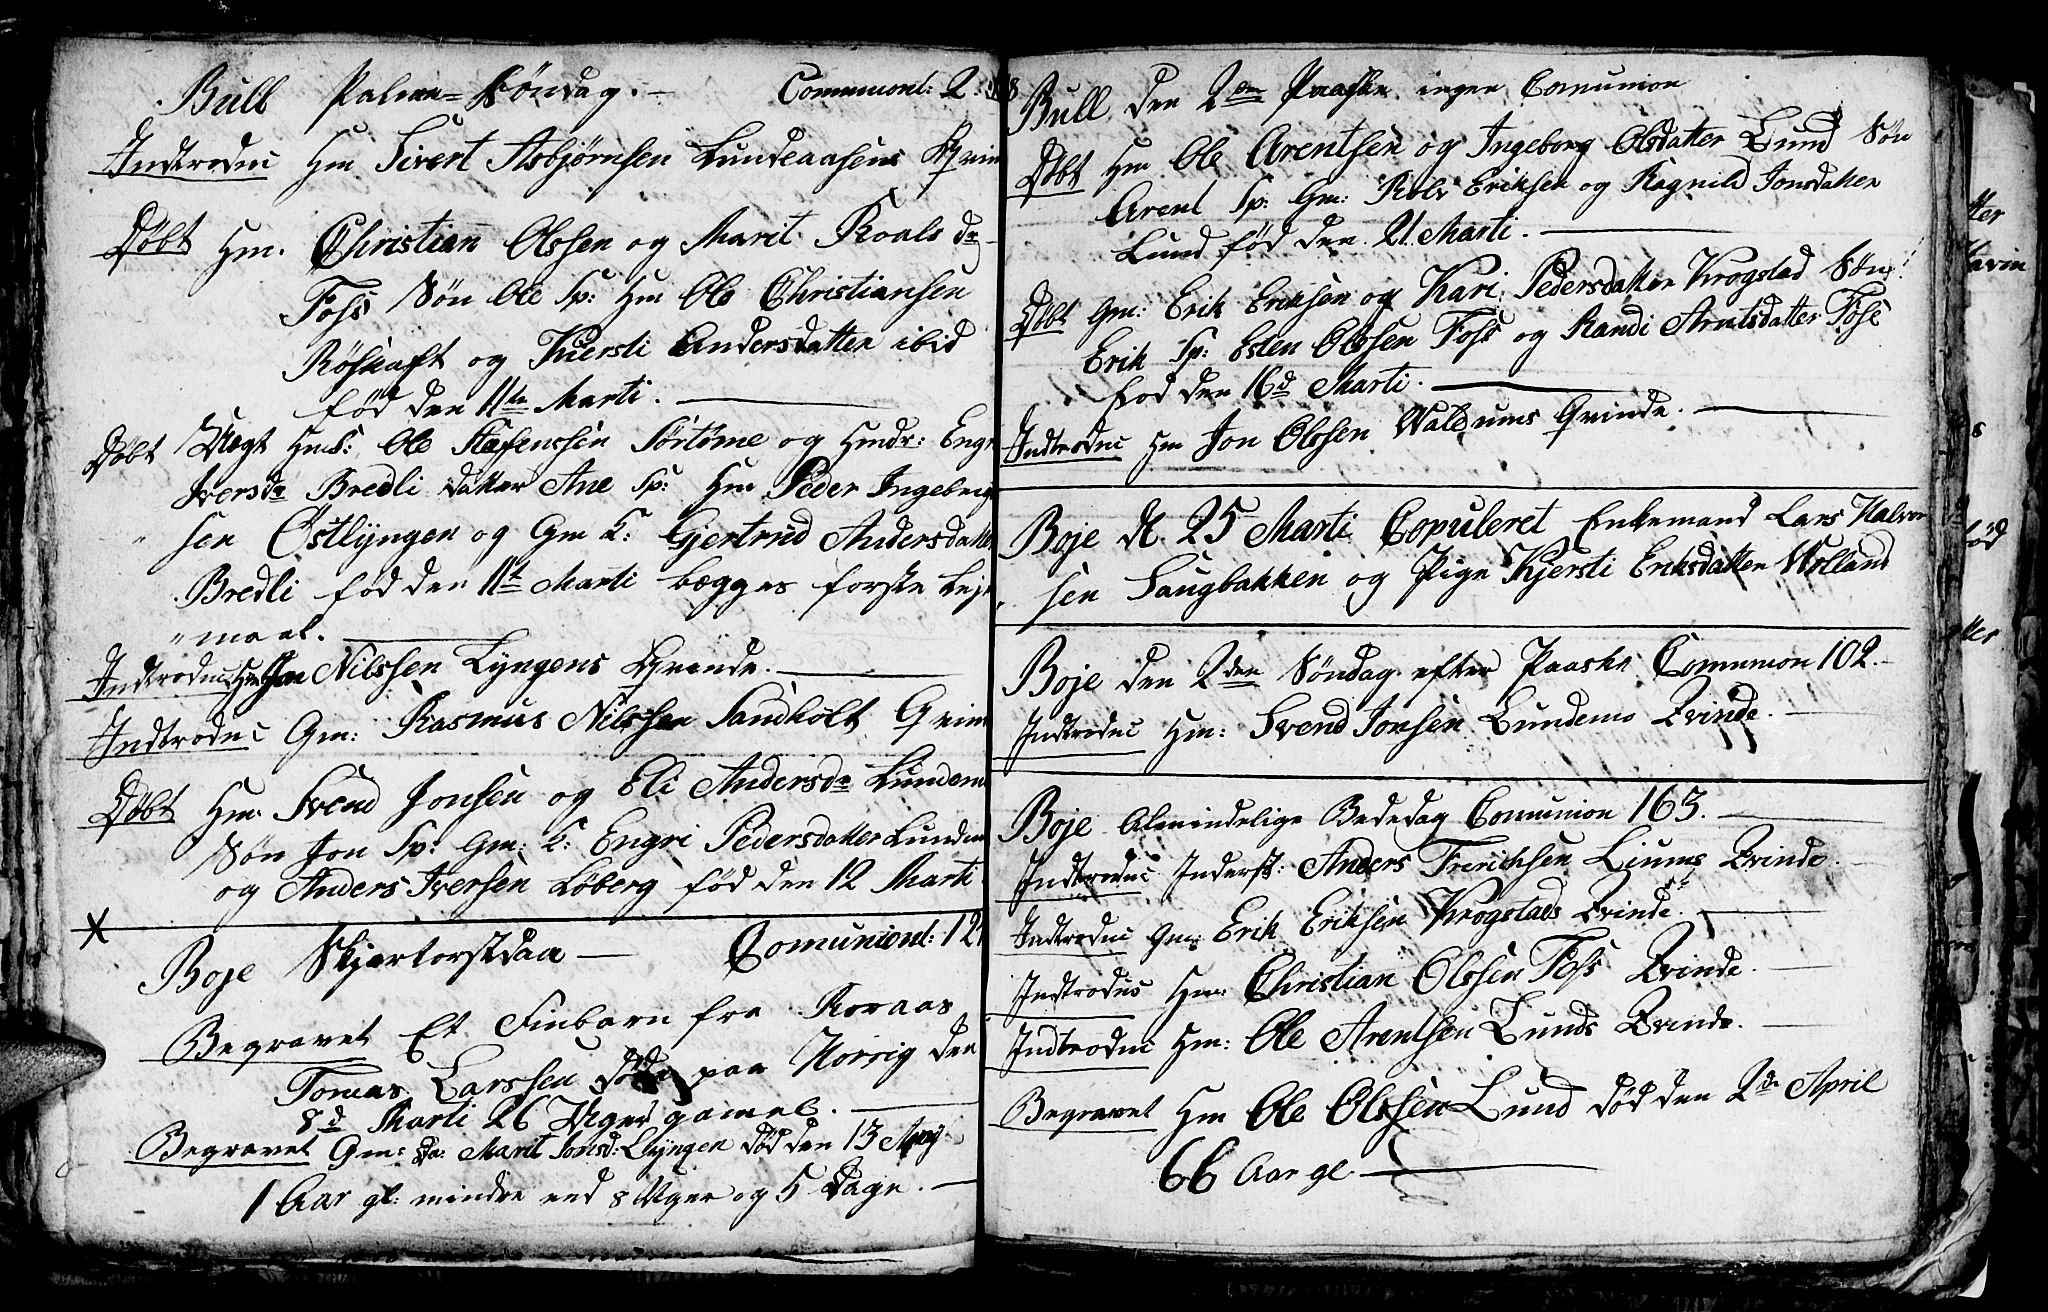 Bull Palme-Søndag. – Comunicnt: 2
Indtroduc Hm Sivert Asbjørnsen Lundeaasens Qvin
Døbt Hm. Christian Olssen og Marit Roals dr
Foss Søn Ole Sp: Hm Ole Christiansen
Røskaft og Kiersti Andersdatter ibid
fød den 11te Marti.
Døbt Uegt Ole Stefenssen Sørtøme og Engr
Iversdr Bredli datter Ane Sp: Hm Peder Ingebrigt
sen Østlyngen og Gm K: Gjertrud Andersdatter
Bredli fød den 11te Marti begges første Leje
" maal.
Indtroduc Hm Nilssen Lyngens Qvinde.
Indtroduc Gm: Rasmus Nilssen Sandholt Qvin
Døbt Hm. Svend Jonsen og Eli Andersdr Lundem
Søn Jon Sp: Gm: K: Engri Pedersdatter Lundem
og Anders Iversen Løberg fød den 12 Marti
X
Boje Skjærtorsdag – Comunicnt: 12
Begravet Et Finbarn fra Roraas
Tomas Larssen døde paa Horrig den
8d Marti 26 Uger gamel.
Begravet Gm: Marit Jonsd: Lyngen død den 13
1 Aar gl: mindre end 8 Uger og 5 Dage. –
Bull den 2den Paaske ingen Comunion
Døbt Hm Ole Arentsen og Ingeborg Olsdatter Lund Søn
Arent Sp: Gm: Rolv Eriksen og Ragnild Jonsdatter
Lund fød den 21 Marti.
Døbt Gm: Erik Eriksen og Kari Pedersdatter Krogstad Søn
Erik Sp: Esten Olssen Foss og Randi Arntsdatter Fosse
Fød den 16d Marti.
Indtroduc Hm Jon Olssen Waldums Qvinde.
Boje d. 25 Marti Copuleret Enkemand Lars Halvor
sen Haugbakken og Pige Kjersti Eriksdatter Wolland
Boje den 2den Søndag efter Paaske Comunion 102.
Indtroduc Hm: Svend Jonsen Lundemo Qvinde.
Boje Almindelige Bededag Comunion 163.
Indtroduc Inderst: Anders Frericksen Liums Qvinde.
Indtroduc Gm: Erik Eriksen Krogstads Qvinde.
Indtroduc Hm: Christian Olssen Foss Qvinde.
Indtroduc Hm: Ole Arentsen Lunds Qvinde.
Begravet Hm Ole Olssen Lund død den 2de April
66 Aar gl.